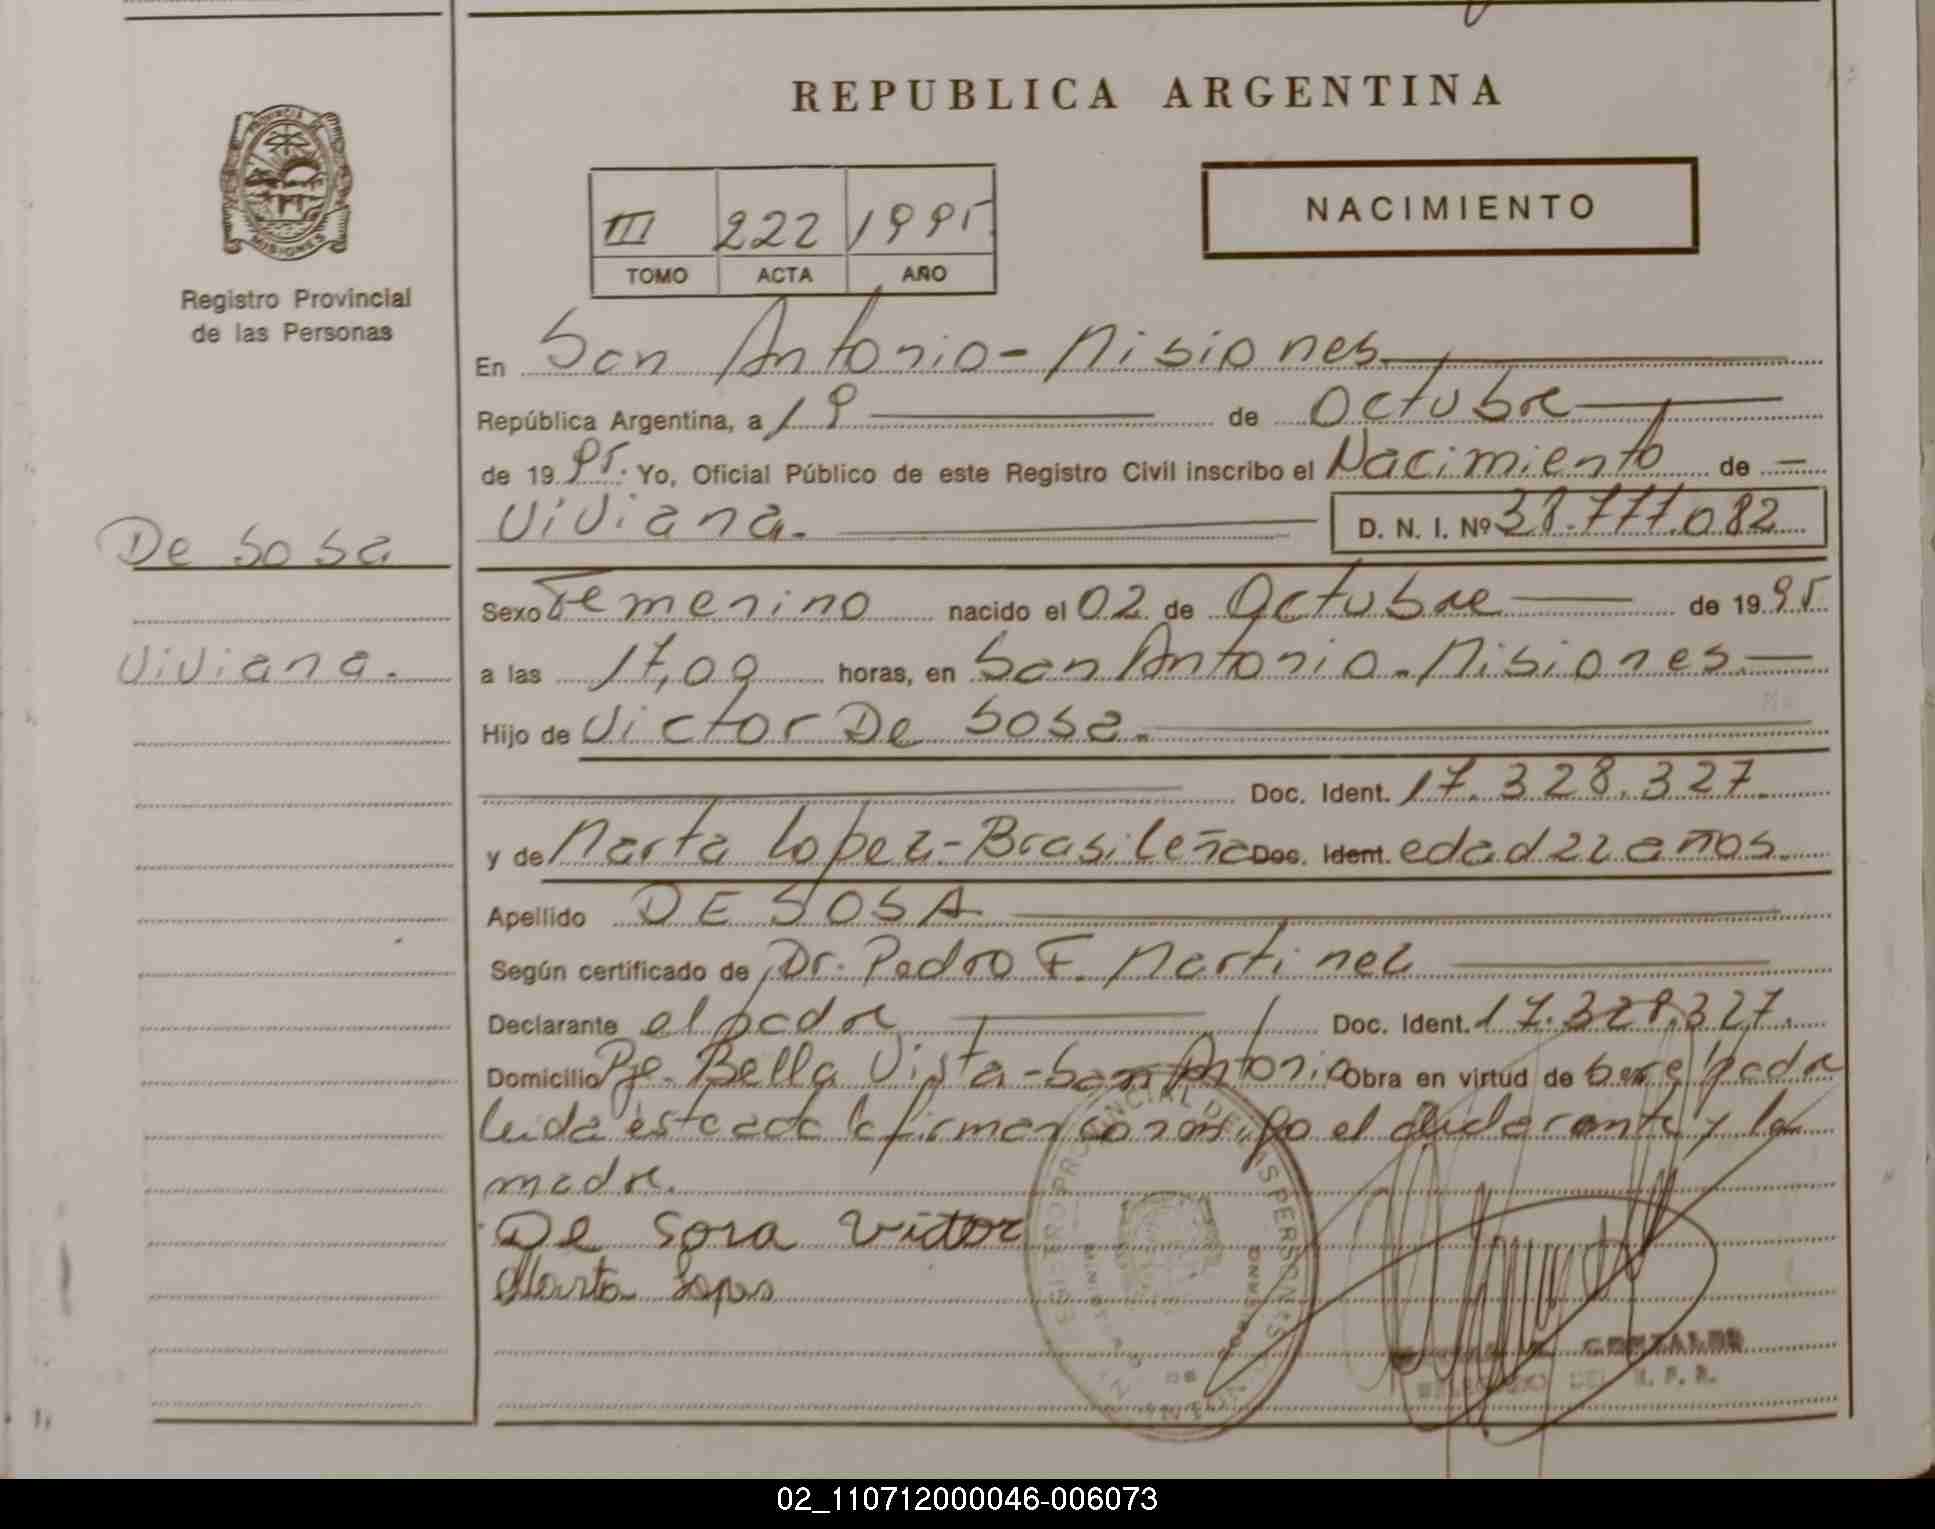 REPUBLICA ARGENTINA
PROVINCIA DE
MISIONES
Registro Provincial
de las Personas
III 222 1995
TOMO ACTA AÑO
NACIMIENTO
En San Antonio - Misiones
República Argentina, a 19 de Octubre
de 1995. Yo, Oficial Público de este Registro Civil inscribo el Nacimiento de
De Sosa
Viviana.
Viviana. D. N. I. Nº 38.777.082
Sexo Femenino nacido el 02 de Octubre de 1995
a las 17,00 horas, en San Antonio - Misiones
Hijo de Victor De Sosa.
Doc. Ident. 17.328.327.
y de Marta Lopez - Brasileña Doc. Ident. edad 22 años.
Apellido DE SOSA
Según certificado de Dr. Pedro F. Martinez
Declarante el padre Doc. Ident. 17.328.327.
Domicilio Pje. Bella Vista - San Antonio Obra en virtud de ser el padre
leida esta acta la firman conmigo el declarante y la
madre.
De Sosa Victor
Marta Lopes
REGISTRO PROVINCIAL DE LAS PERSONAS
GONZALEZ
DELEGADO DEL R. P. P.
02_110712000046-006073